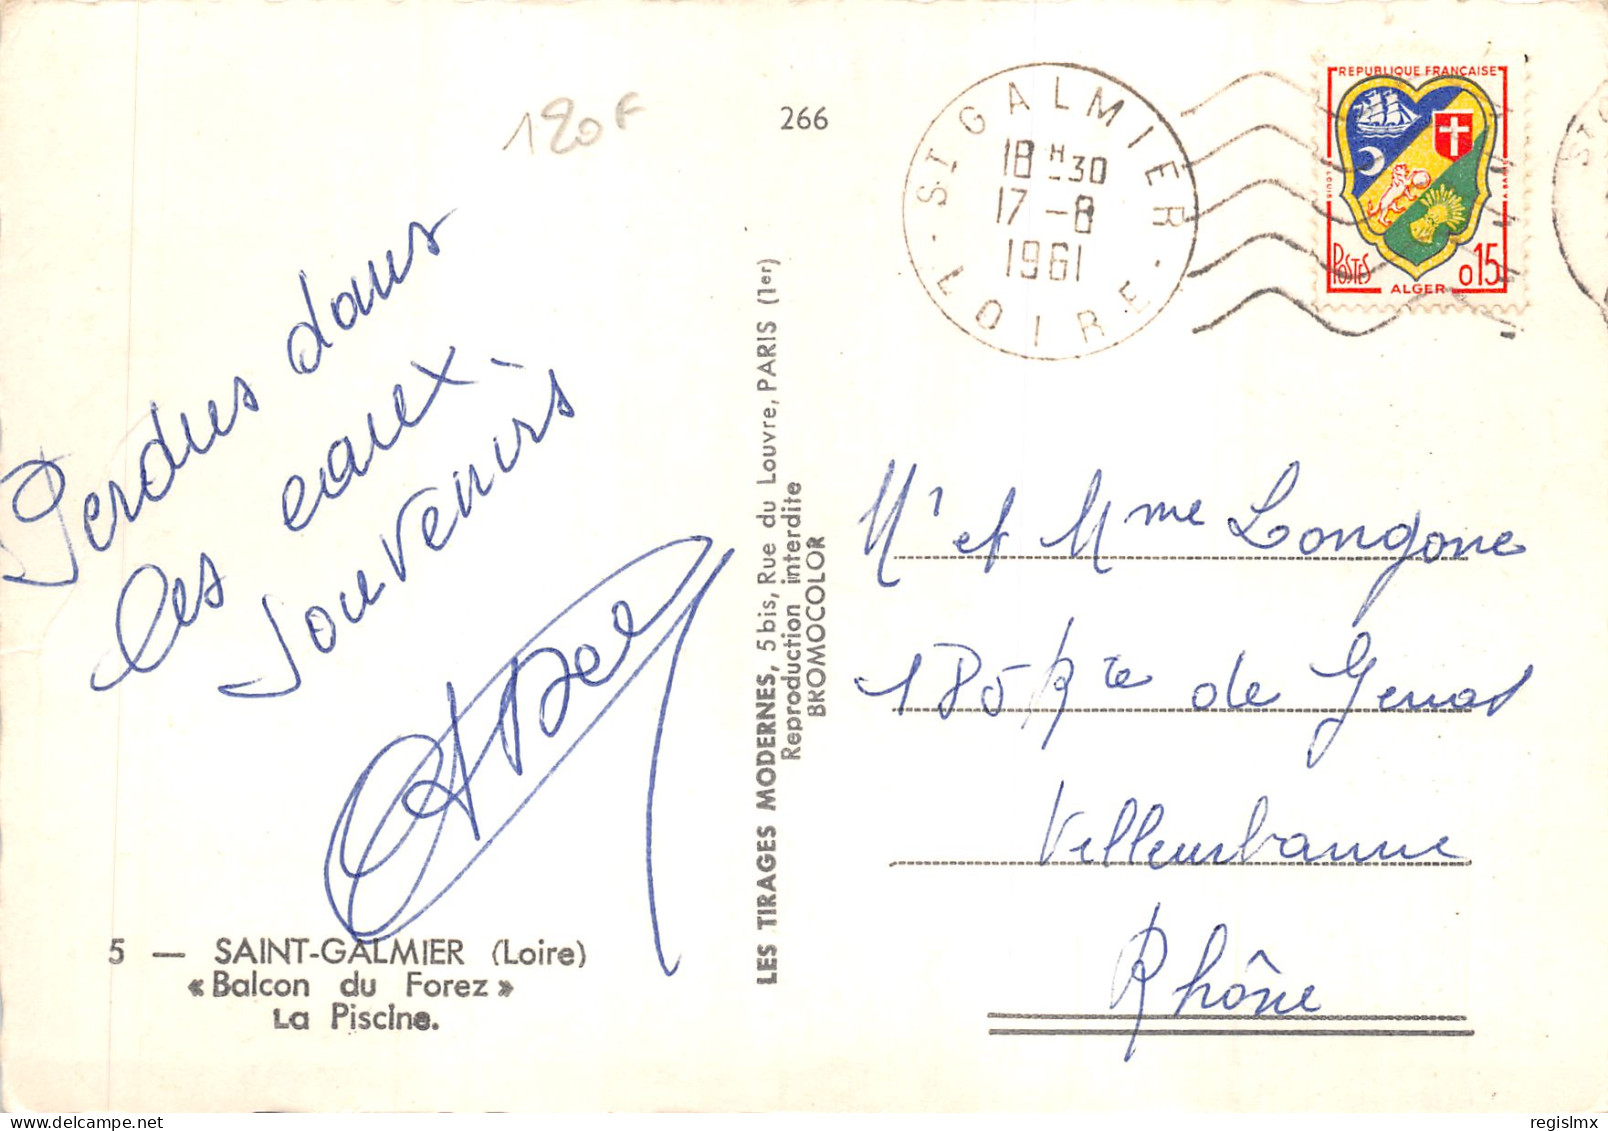 120F
266
ST GALMIER
18H30
17-8
1961
LOIRE
REPUBLIQUE FRANÇAISE
POSTES
0,15
ALGER
Perdus dans
les eaux
souvenirs
LES TIRAGES MODERNES, 5 bis, Rue du Louvre, PARIS (1er)
Reproduction interdite
BROMOCOLOR
Mr et Mme Longone
185 Rte de Genas
Villeurbanne
Rhône
5 — SAINT-GALMIER (Loire)
« Balcon du Forez »
La Piscine.
regislmx